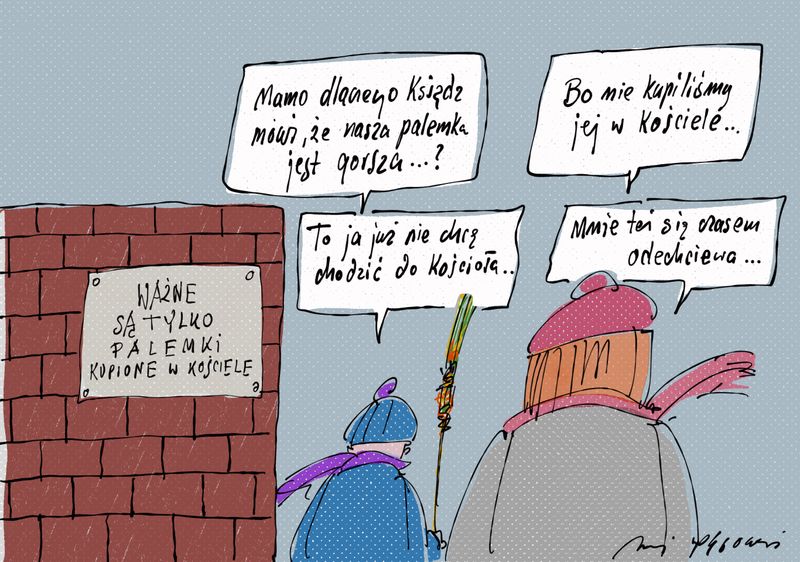 Mamo dlaczego Ksiądz
mówi, że nasza palemka
jest gorsza...?
Bo nie kupiliśmy
jej w Kościele...
To ja już nie chcę
chodzić do Kościoła..
Mnie też się czasem
odechciewa...
WAŻNE
SĄ TYLKO
PALEMKI
KUPIONE W KOŚCIELE